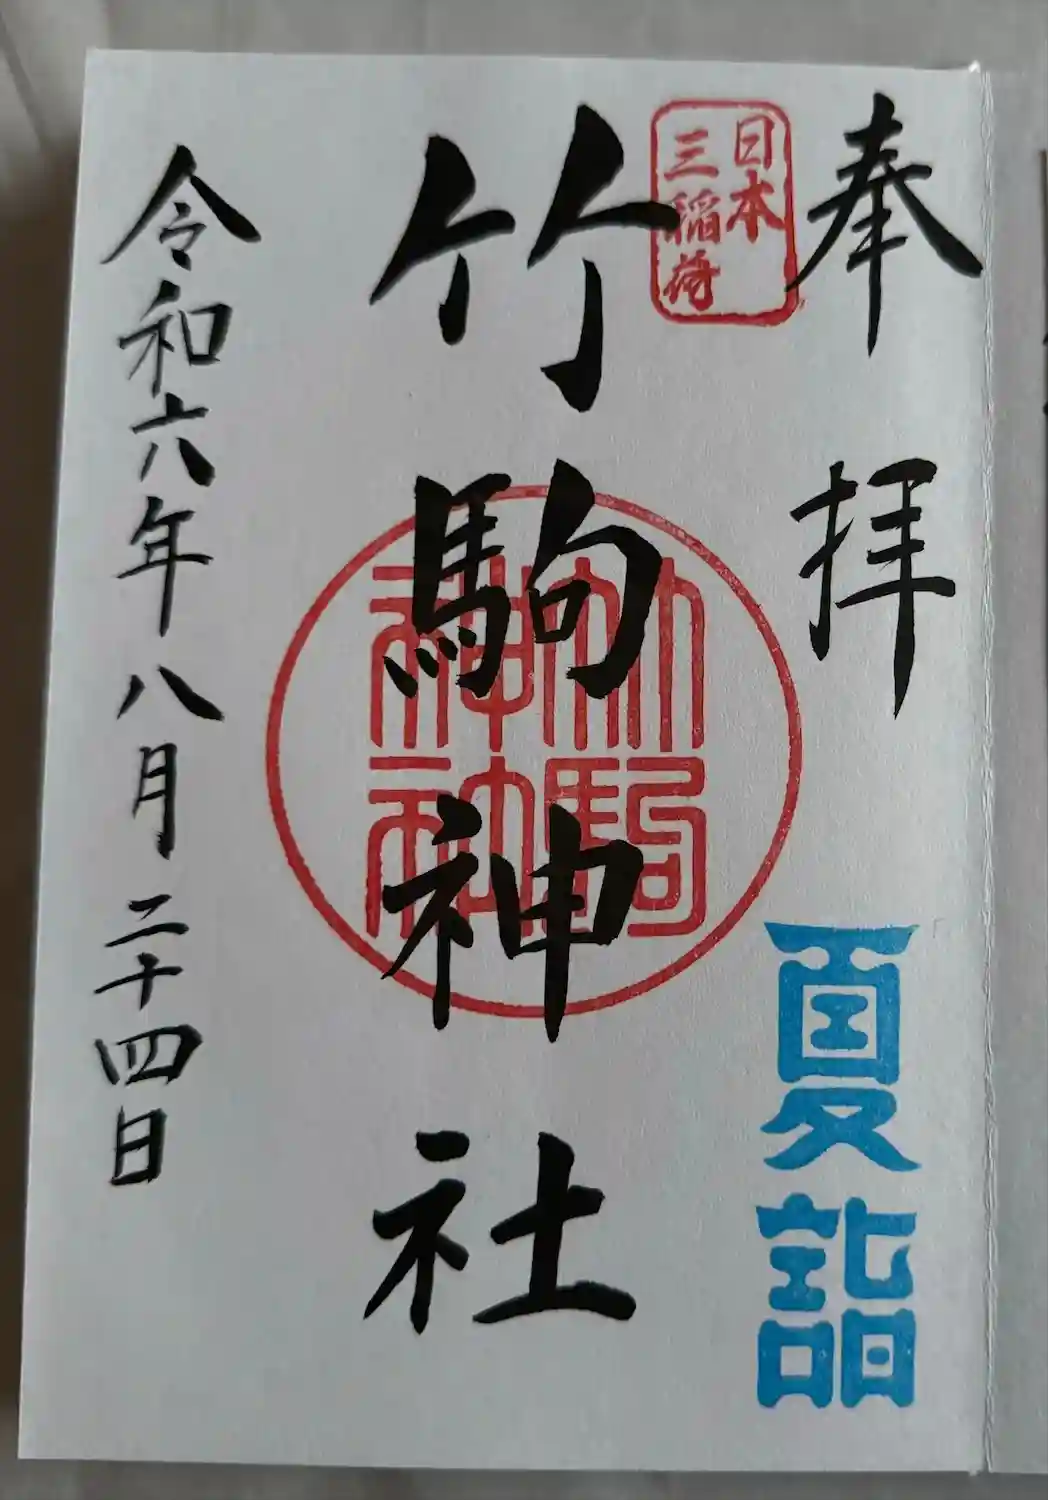 奉拝
日本
三稲荷
夏詣
竹駒神社
竹駒
神社
令和六年八月二十四日